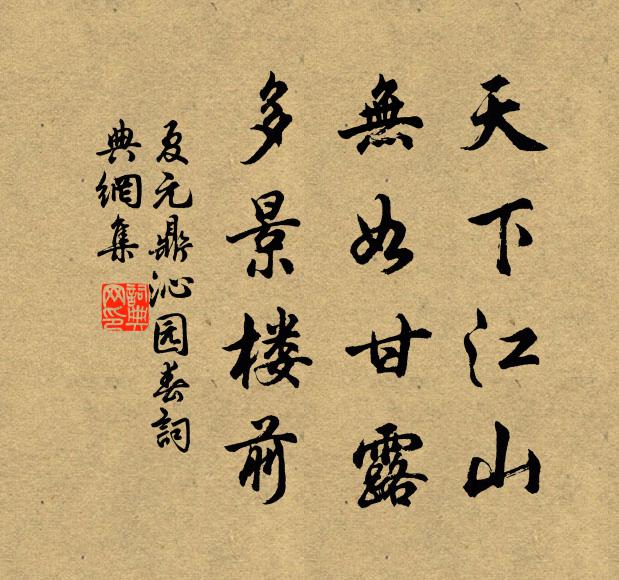 天下江山
無如甘露
多景楼前
夏元鼎沁园春詞
典網集
詞典
网印